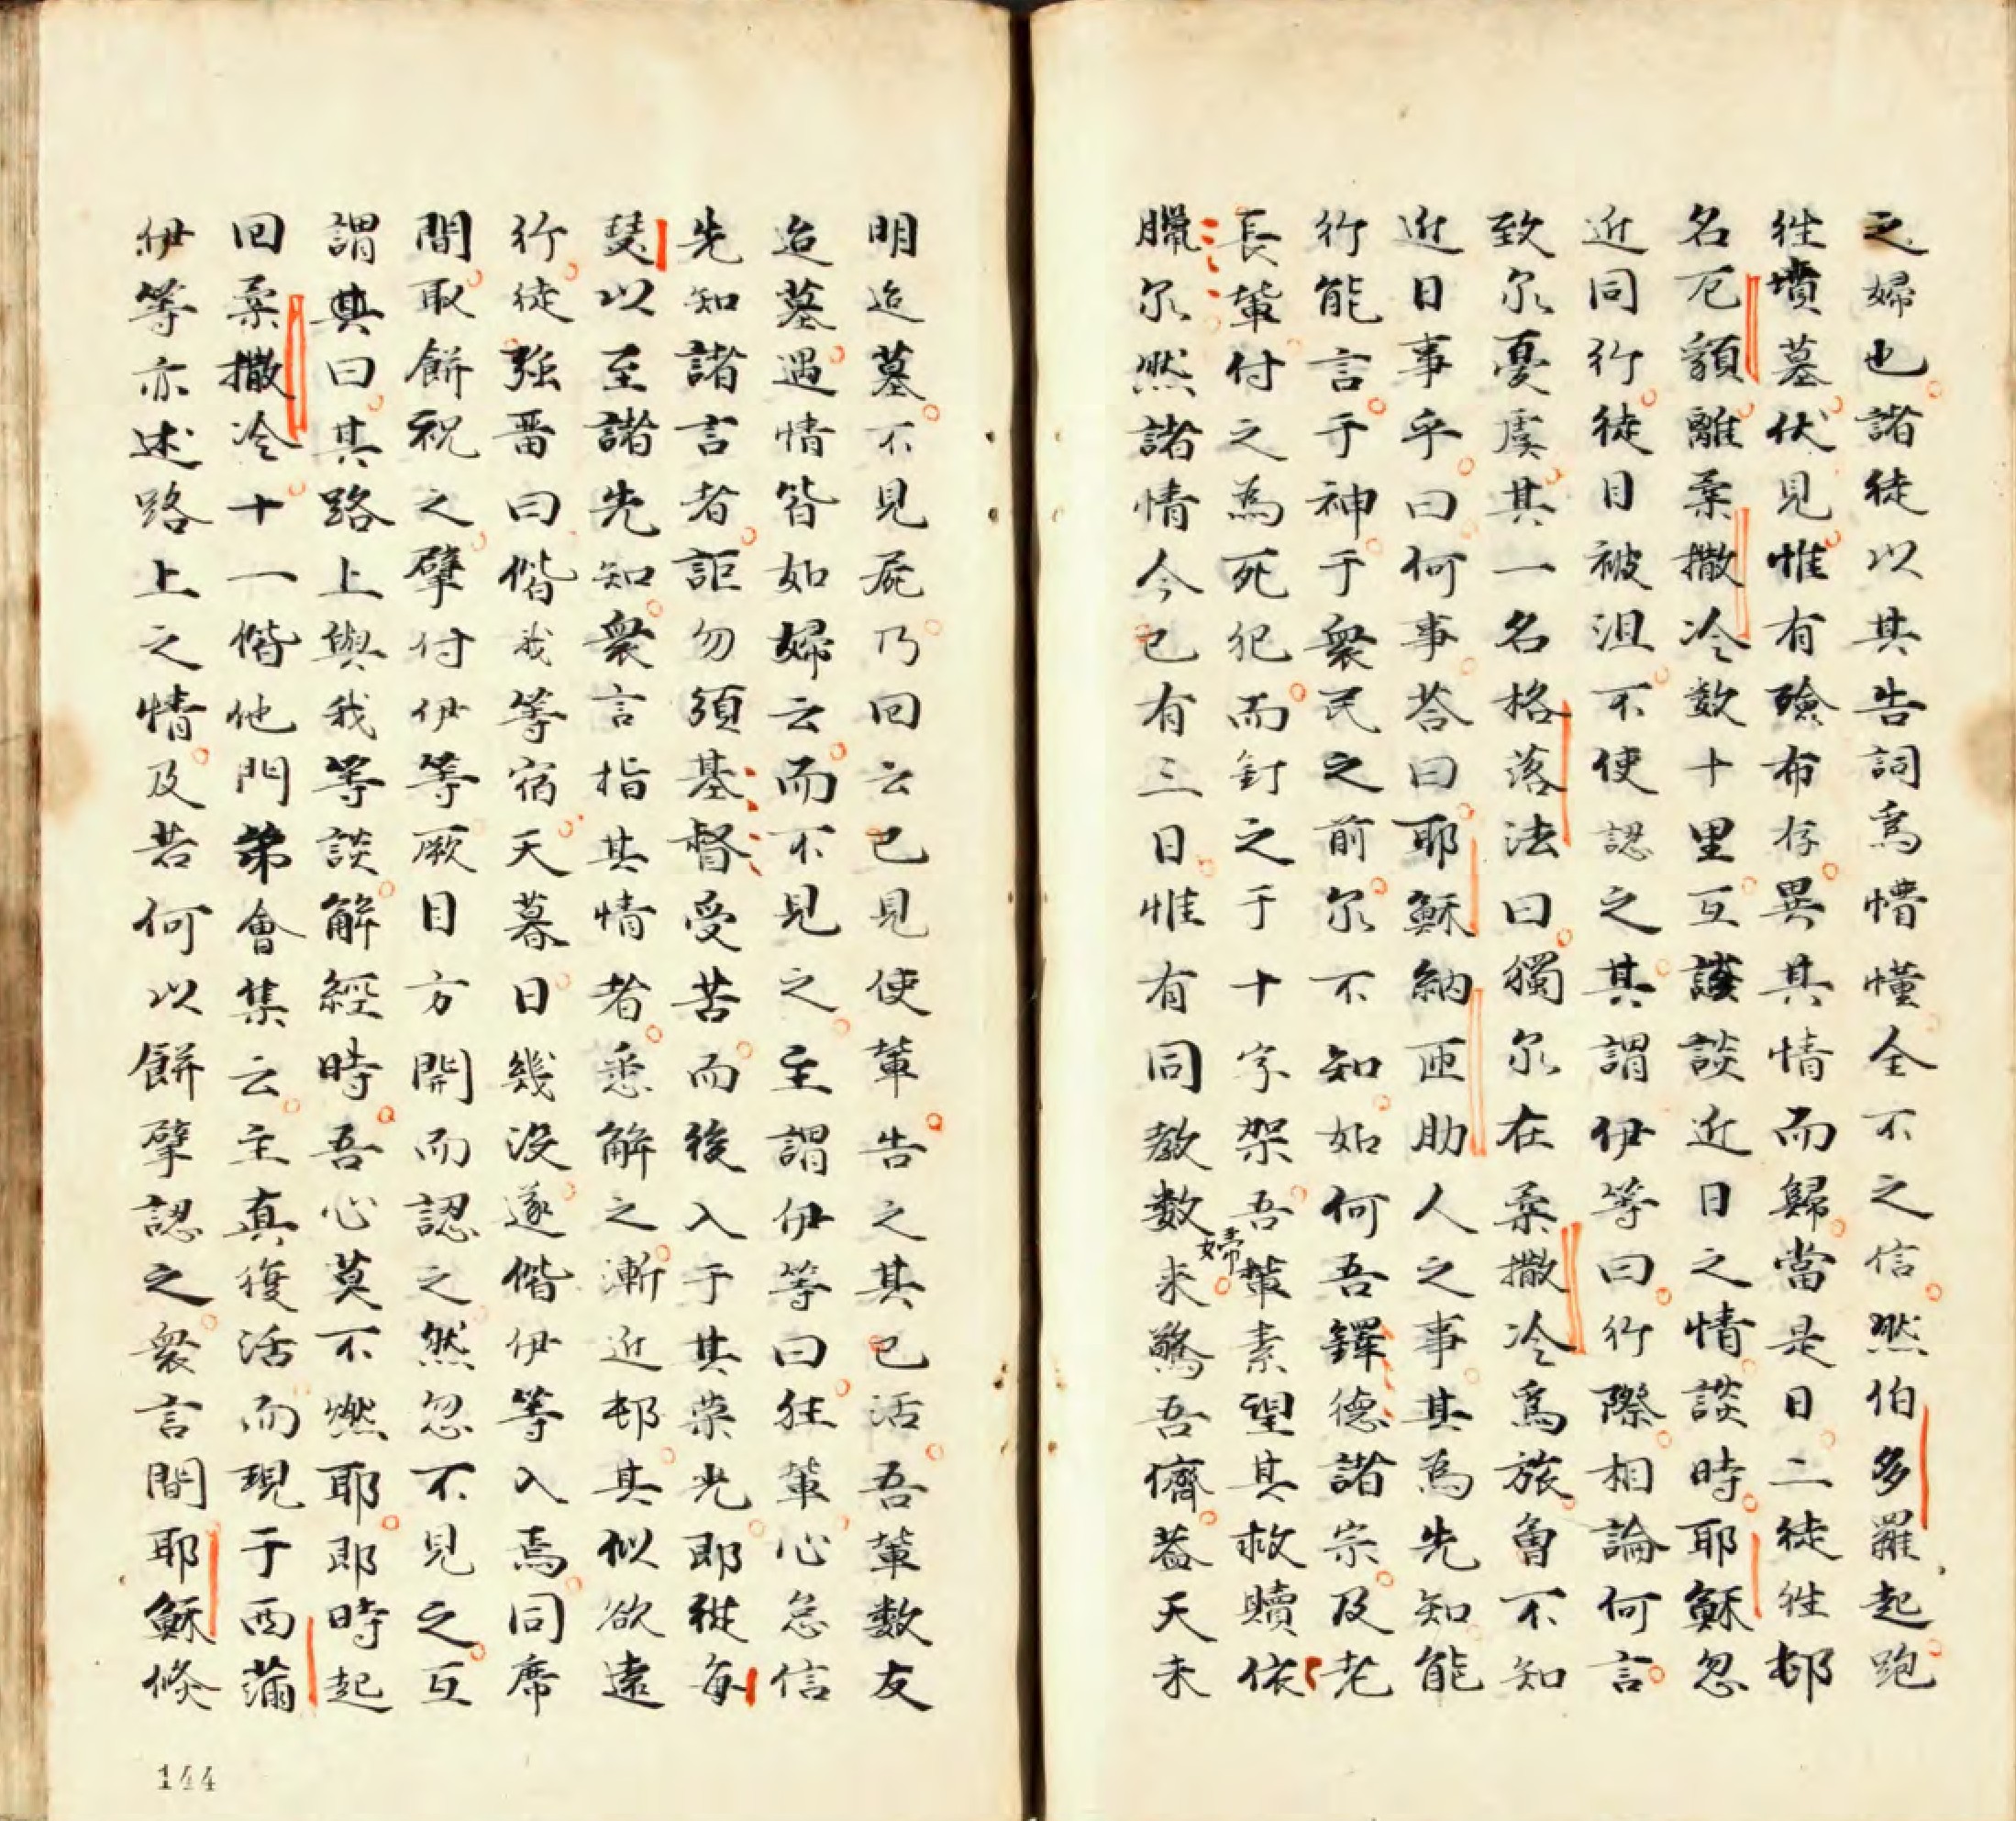 之婦也諸徒以其告詞爲懵懂全不之信然伯多羅起跑
徃墳墓伏見惟有殮布存異其情而歸當是日二徒徃邨
名厄貌離柔撒冷数十里互談談近日之情談時耶穌忽
近同行徒目被沮不使認之其謂伊等曰行際相論何言
致尔憂虞其一名格落法曰獨尔在柔撒冷爲旅魯不知
近日事乎曰何事荅曰耶穌納匝肋人之事其為先知能
行能言于神于衆民之前尔不知如何吾鐸德諸宗及老
長輩付之為死犯而釘之于十字架吾輩素望其救贖依
臘尔然諸情今已有三日惟有同教数婦来驚吾儕葢天未
明迨墓不見屍乃回云已見使輩告之其已活吾輩数友
迨墓遇情皆如婦云而不見之主謂伊等曰狂輩心怠信
先知諸言者詎勿須基督受苦而後入于其荣光即從每
瑟以至諸先知衆言指其情者悉解之漸近邨其似欲遠
行徒强畱曰偕我等宿天暮日幾没遂偕伊等入焉同席
間取餅祝之擘付伊等厥目方開而認之然忽不見之互
謂其曰其路上與我等談解經時吾心莫不燃耶即時起
回柔撒冷十一偕他門弟會集云主真復活而現于西蒲
伊等亦述路上之情及若何以餅擘認之衆言間耶穌倏
144